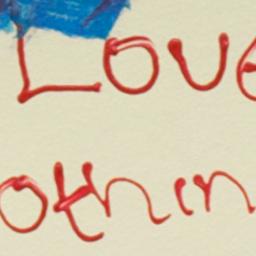 Love
othin